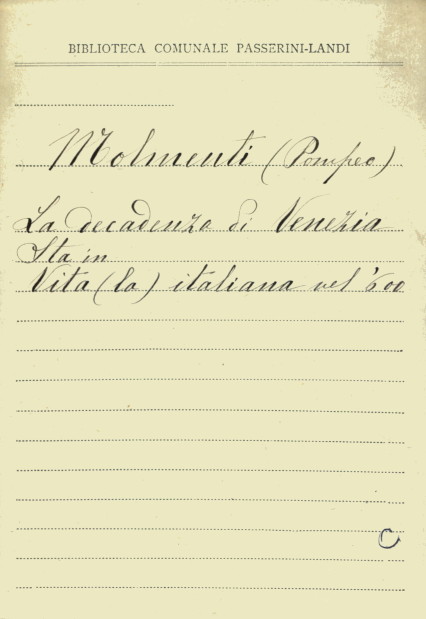 BIBLIOTECA COMUNALE PASSERINI-LANDI
Molmenti (Pompeo)
La decadenza di Venezia
Sta in
Vita (la) italiana nel '600
C